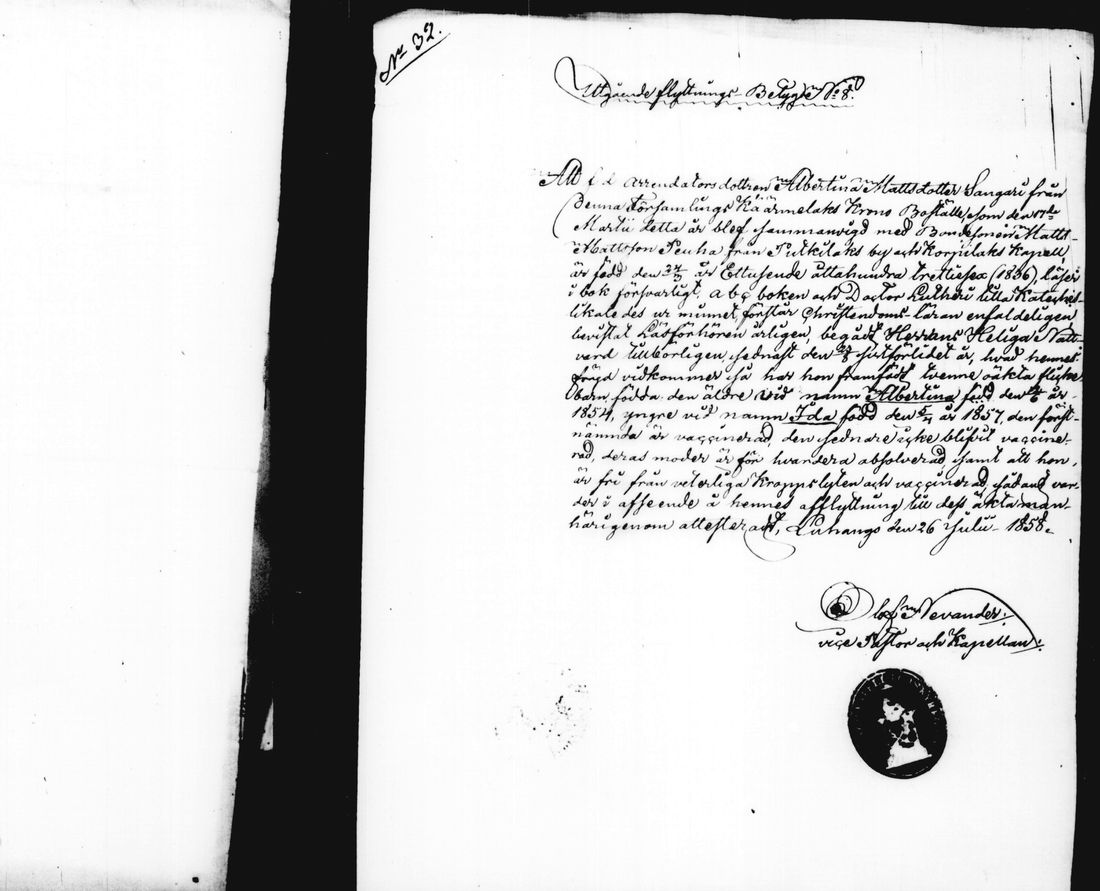 No 32.
Utgående flyttnings Betyg No 8.
Att f d arrendators dottren Albertina Mattsdotter Sangari från
denna Församlings Käärmelaks Krono Boställe, som den 17de
Martii detta år blef sammanvigd med Bondesonen Matts
Mattsson Peuha från Putkilaks by och Korpilaks Kapell,
är född den 24/3 år Ettusende åttahundra trettiosex (1836), läser
i bok försvarligt abc boken och Doctor Lutheri lilla Kateches
likaledes ur minnet, förstår Christendoms-läran enfaldeligen
bevistat Läsförhören årligen, begått Herrans Heliga Natt-
vard tillbörligen sednast den sistförlidet år, hvad hennes
fräjd vidkommer så har hon framfödt tvenne oäkta flicke
barn, födda den äldre vid namn Albertina född den år
1854, yngre vid namn Ida född den 5/4 år 1857, den först-
nämnda är vaccinerad, den sednare icke blifvit vaccine-
rad, deras moder är för hvardera absolverad, samt att hon
är fri från veterliga Kroppslyten och vaccinerad, sådant var-
der i afseende å hennes afflyttning till dess äkta man
härigenom attesteradt, Luhango den 26 Julii 1858.
Olof Nevander.
vice Pastor och Kapellan.